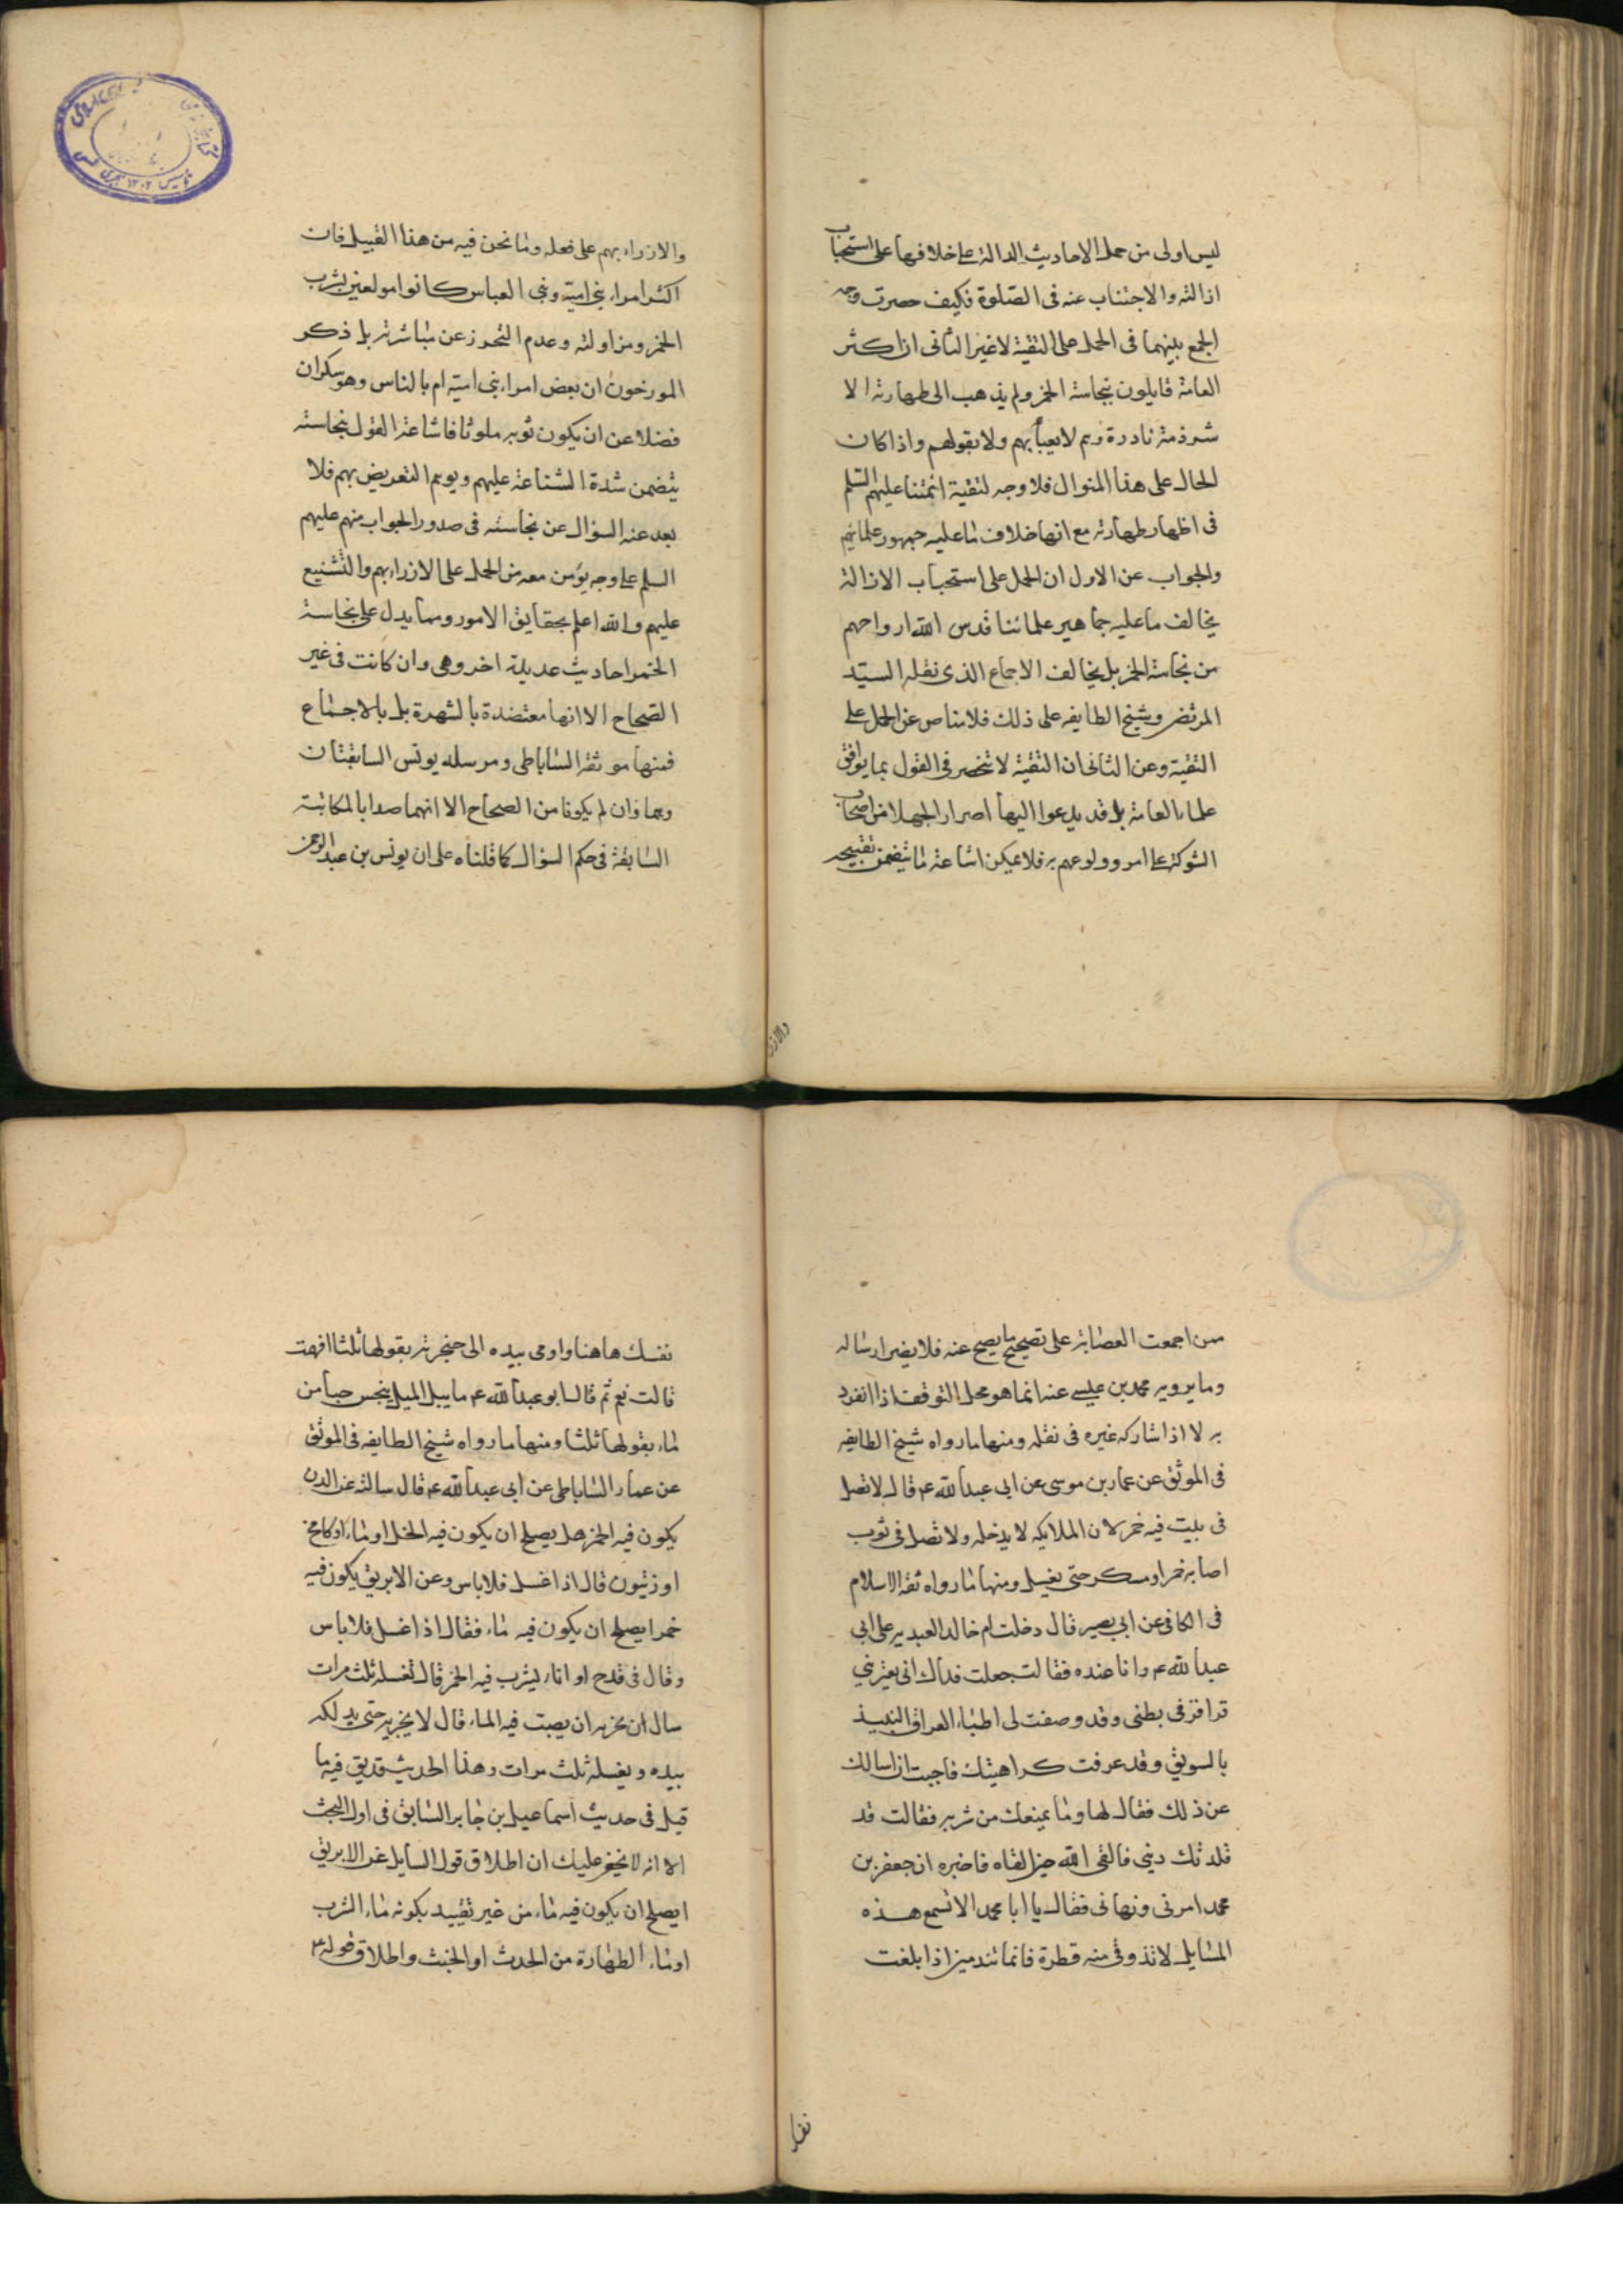 ليس اولى من حمل الاحاديث الدالة على خلافها على استحباب
ازالته والاجتناب عنه فى الصلوة فكيف حصرت وجه
الجمع بينهما فى الحمل على التقية لا غير الثانى ان اكثر
العامة قايلون بنجاسة الخمر ولم يذهب الى طهارته الا
شرذمة نادرة وهم لا يعبأ بهم ولا بقولهم واذا كان
الحال على هذا المنوال فلا وجه لتقية ائمتنا عليهم السلم
فى اظهار طهارته مع انها خلاف ما عليه جمهور علمائهم
والجواب عن الاول ان الحمل على استحباب الازالة
يخالف ما عليه جماهير علمائنا قدس الله ارواحهم
من نجاسة الخمر بل يخالف الاجماع الذى نقله السيد
المرتضى وشيخ الطايفه على ذلك فلا مناص عن الحمل على
التقية وعن الثانى ان التقية لا تنحصر فى القول بما يوافق
علماء العامة بل قد يدعوا اليها اصرار الجهلا من اصحاب
الشوكة على امر وولوعهم به فلا يمكن اشاعة ما يتضمن تقبيحه
والازر
والازراء بهم على فعله وما نحن فيه من هذا القبيل فان
اكثر امراء بنى امية وبنى العباس كانوا مولعين بشرب
الخمر ومزاولته وعدم التحرز عن مباشرته بل ذكر
المورخون ان بعض امراء بنى امية ام بالناس وهو سكران
فضلا عن ان يكون ثوبه ملوثا فاشاعة القول بنجاسته
يتضمن شدة الشناعة عليهم ويوهم التعريض بهم فلا
بعد عند السؤال عن نجاسته فى صدور الجواب منهم عليهم
السلم على وجه يؤمن معه من الحمل على الازراء بهم والتشنيع
عليهم والله اعلم بحقايق الامور ومما يدل على نجاسة
الخمر احاديث عديدة اخر وهى وان كانت فى غير
الصحاح الا انها معتضدة بالشهرة بل بالاجماع
فمنها موثقة الساباطى ومرسله يونس السابقتان
وهما وان لم يكونا من الصحاح الا انهما صدا بالمكاتبة
السابقة فى حكم السؤال كما قلناه على ان يونس بن عبد الرحمن
ممن اجمعت العصابة على تصحيح ما يصح عنه فلا يضر ارساله
وما يرويه محمد بن عيسى عنه انما هو محل التوقف اذا انفرد
به لا اذا شاركه غيره فى نقله ومنها ما رواه شيخ الطايفه
فى الموثق عن عمار بن موسى عن ابى عبد الله ع قال لا تصل
فى بيت فيه خمر لان الملايكه لا يدخله ولا تصل فى ثوب
اصابه خمر او مسكر حتى يغسل ومنها ما رواه ثقة الاسلام
فى الكافى عن ابى بصير قال دخلت ام خالد العبديه على ابى
عبد الله ع وانا عنده فقالت جعلت فداك انى يعترينى
قراقر فى بطنى وقد وصفت لى اطباء العراق النبيذ
بالسويق وقد عرفت كراهيتك فاحببت ان اسالك
عن ذلك فقال لها وما يمنعك من شربه فقالت قد
قلدتك دينى فالقى الله حين القاه فاخبره ان جعفر بن
محمد امرنى ونهانى فقال يا ابا محمد الا تسمع هذه
المسايل لا تذوقى منه قطرة فانما تندمين اذا بلغت
نفسك
نفسك هاهنا واومى بيده الى حنجرته يقولها ثلثا افهمت
قالت نعم ثم قال ابو عبد الله ع ما يبل الميل ينجس حبا من
ماء يقولها ثلثا ومنها ما رواه شيخ الطايفه فى الموثق
عن عمار الساباطى عن ابى عبد الله ع قال سالته عن الدن
يكون فيه الخمر هل يصلح ان يكون فيه الخل او ماء او كامخ
او زيتون قال اذا غسل فلا باس وعن الابريق يكون فيه
خمر ايصلح ان يكون فيه ماء فقال اذا غسل فلا باس
وقال فى قدح او اناء يشرب فيه الخمر قال تغسله ثلث مرات
سال ان يصبت فيه الماء قال لا يجزيه حتى يدلكه
بيده ويغسله ثلث مرات وهذا الحديث قد يق فيه ما
قيل فى حديث اسماعيل بن جابر السابق فى اول البحث
الا انه لا يخفى عليك ان اطلاق قول السايل عن الابريق
ايصلح ان يكون فيه ماء من غير تقييد بكونه ماء الشرب
او ماء الطهارة من الحدث او الخبث واطلاق قوله ع